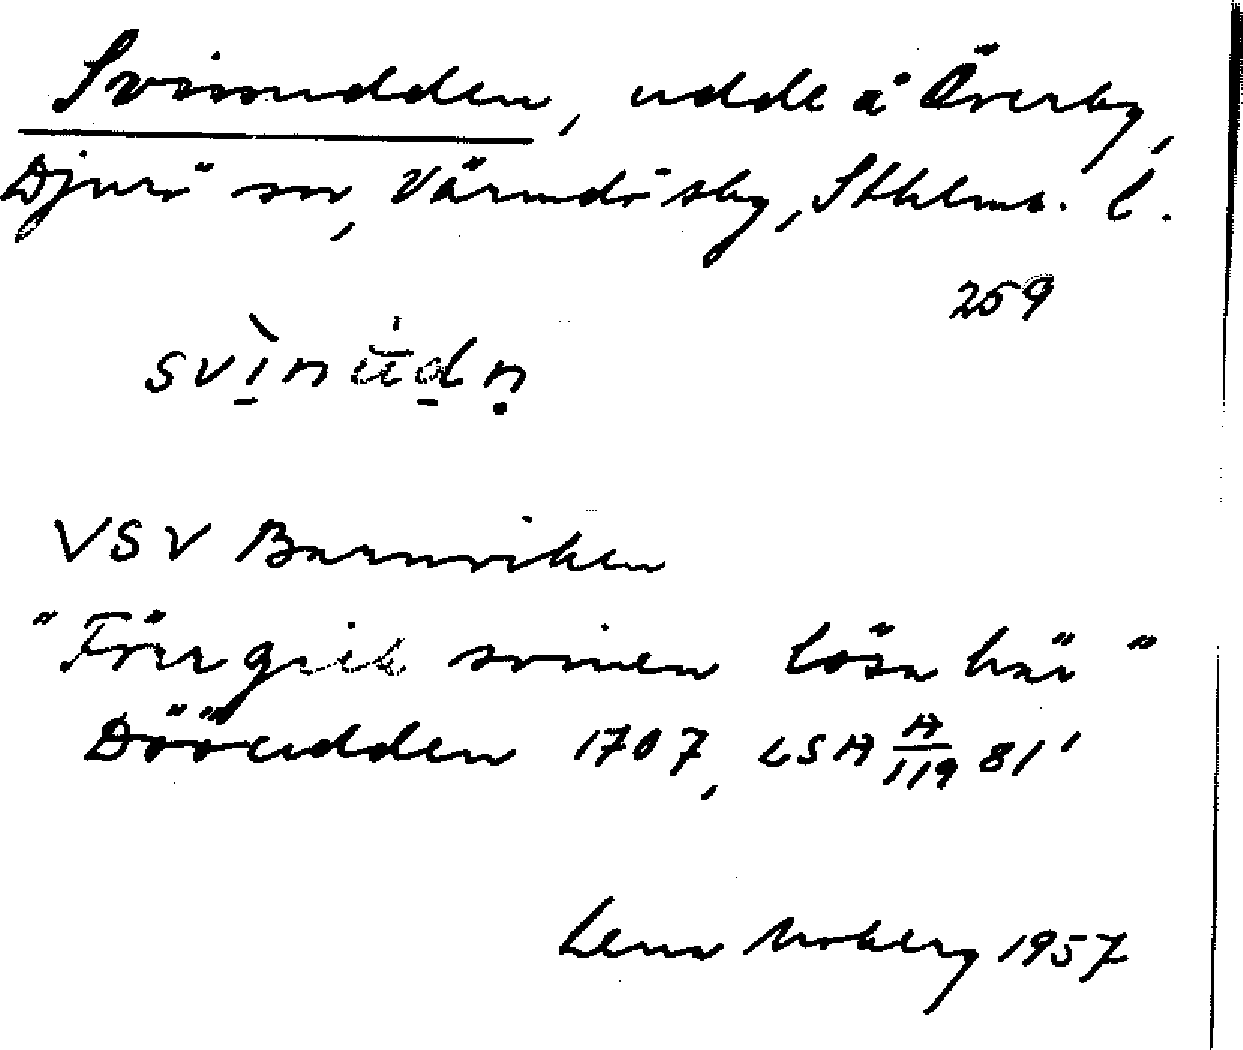 Svinudden, udde å Överby,
Djurö sn, Värmdö sky, Sthlms. l.
259
svìnu̇̄dṇ
VSV Barnviken
"Förr gick svinen lösa här"
Dööudden 1707, LSA A/119 81'
Lena Moberg 1957